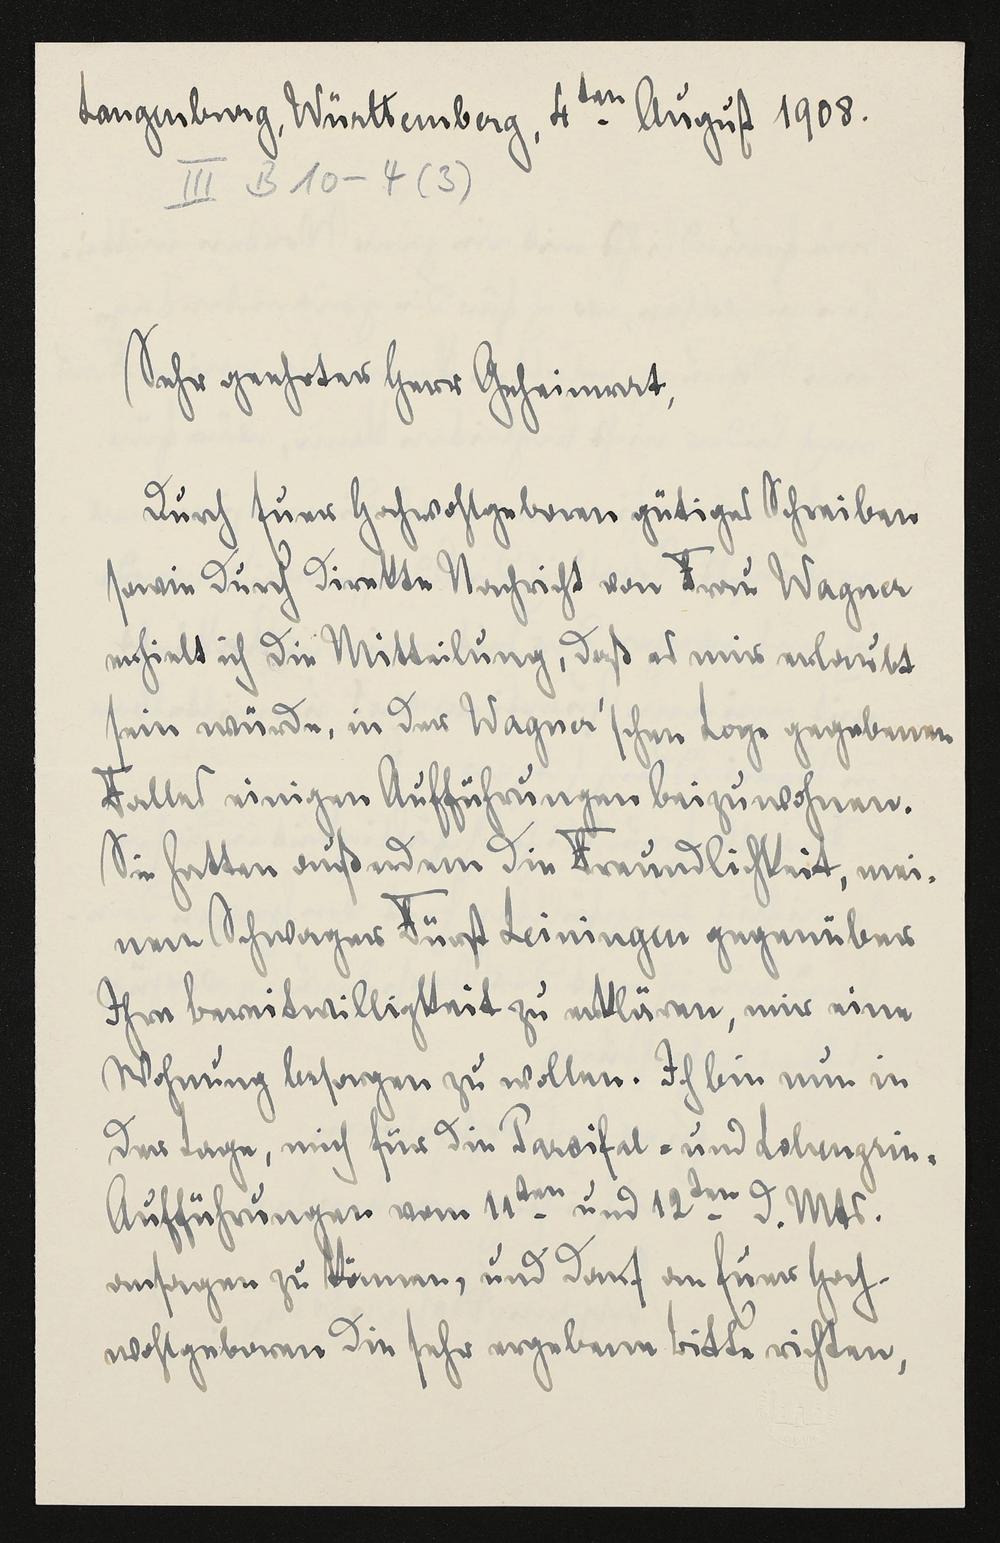 Langenburg, Württemberg, 4ten August 1908.
III B 10-4 (3)
Sehr geehrter Herr Geheimrat,
Durch Euer Hochwohlgeboren gütiges Schreiben
sowie durch direkte Nachricht von Frau Wagner
erhielt ich die Mitteilung, daß es mir erlaubt
sein würde, in der Wagner'schen Loge gegebenen
Falles einigen Aufführungen beizuwohnen.
Sie hatten außerdem die Freundlichkeit, mei-
nem Schwager Fürst Leiningen gegenüber
Ihre bereitwilligkeit zu erklären, mir eine
Wohnung besorgen zu wollen. Ich bin nun in
der Lage, mich für die Parsifal- und Lohengrin-
Aufführungen vom 11ten und 12ten d. Mts.
ansagen zu können, und darf an Euer Hoch-
wohlgeboren die sehr ergebene Bitte richten,